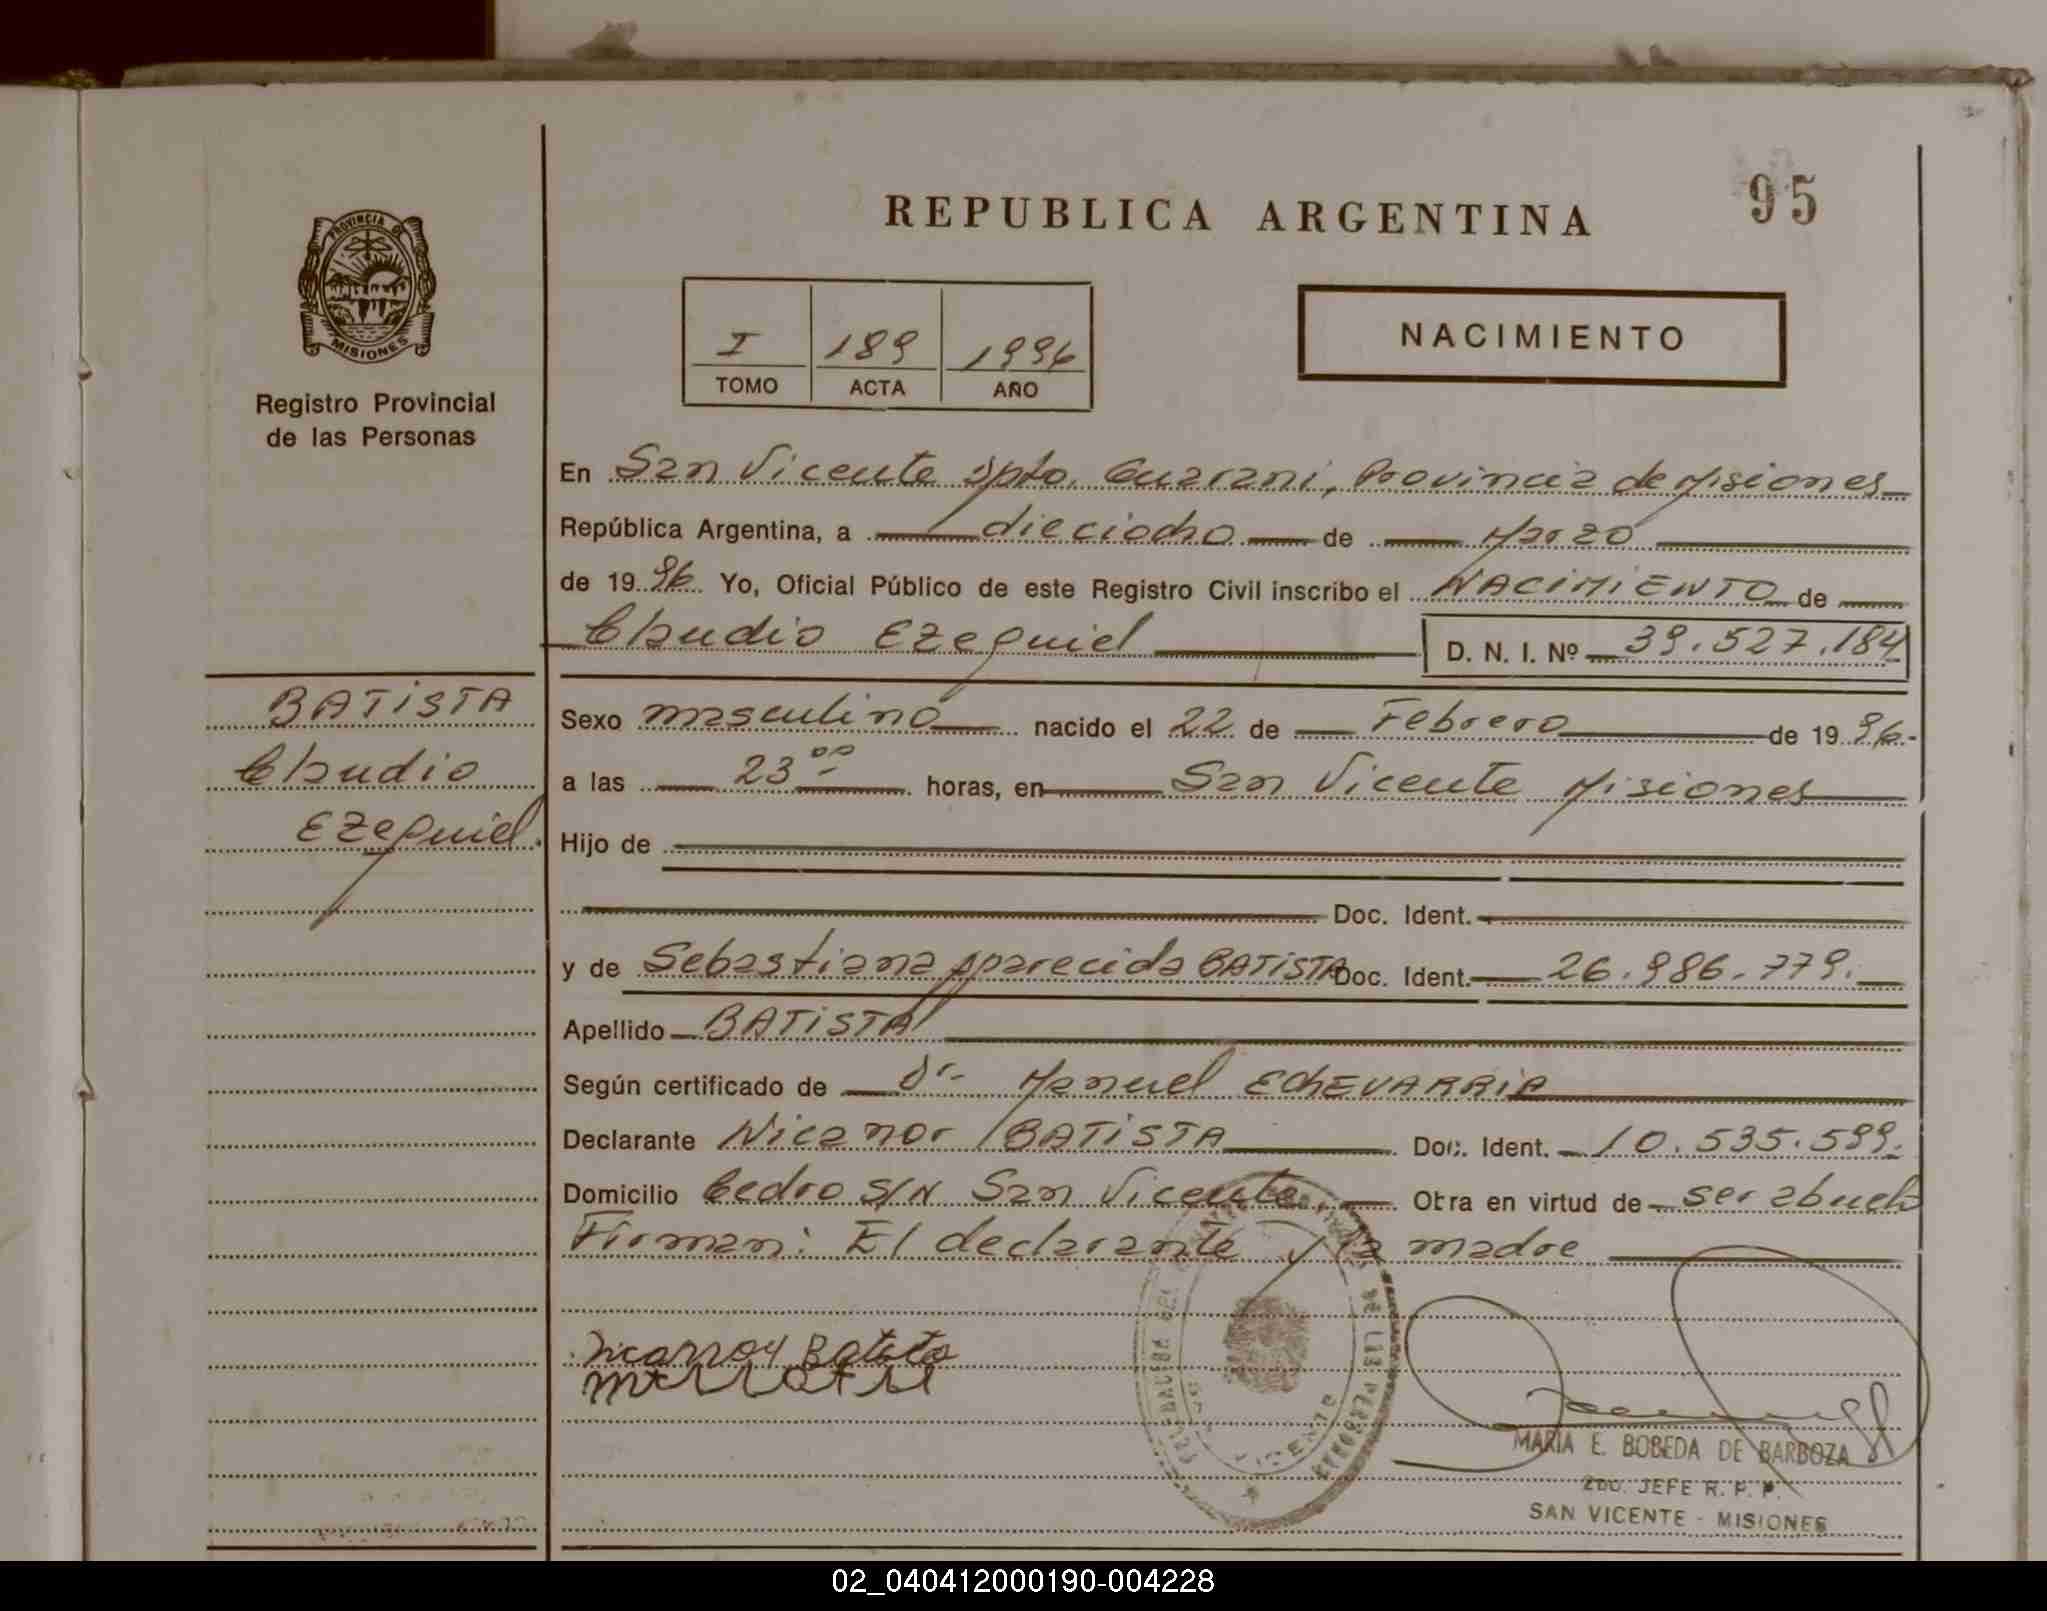 REPUBLICA ARGENTINA
95
PROVINCIA DE
MISIONES
Registro Provincial
de las Personas
I 189 1996
TOMO ACTA AÑO
NACIMIENTO
En San Vicente Dpto. Guarani, Provincia de Misiones
República Argentina, a dieciocho de Marzo
de 19 96 Yo, Oficial Público de este Registro Civil inscribo el NACIMIENTO de
Claudio Ezequiel D. N. I. Nº 39.527.184
BATISTA
Claudio
Ezequiel.
Sexo masculino nacido el 22 de Febrero de 19 96.-
a las 23 00 horas, en San Vicente Misiones
Hijo de
Doc. Ident.
y de Sebastiana Aparecida BATISTA Doc. Ident. 26.986.779.
Apellido BATISTA
Según certificado de Dr. Manuel ECHEVARRIA
Declarante Nicanor BATISTA Doc. Ident. 10.535.599.
Domicilio Cedro S/N San Vicente Obra en virtud de ser abuelo
Firman: El declarante y la madre
DE LAS PERSONAS
VICENTE
MARIA E. BOBEDA DE BARBOZA
2DO. JEFE R. P. P.
SAN VICENTE - MISIONES
02_040412000190-004228